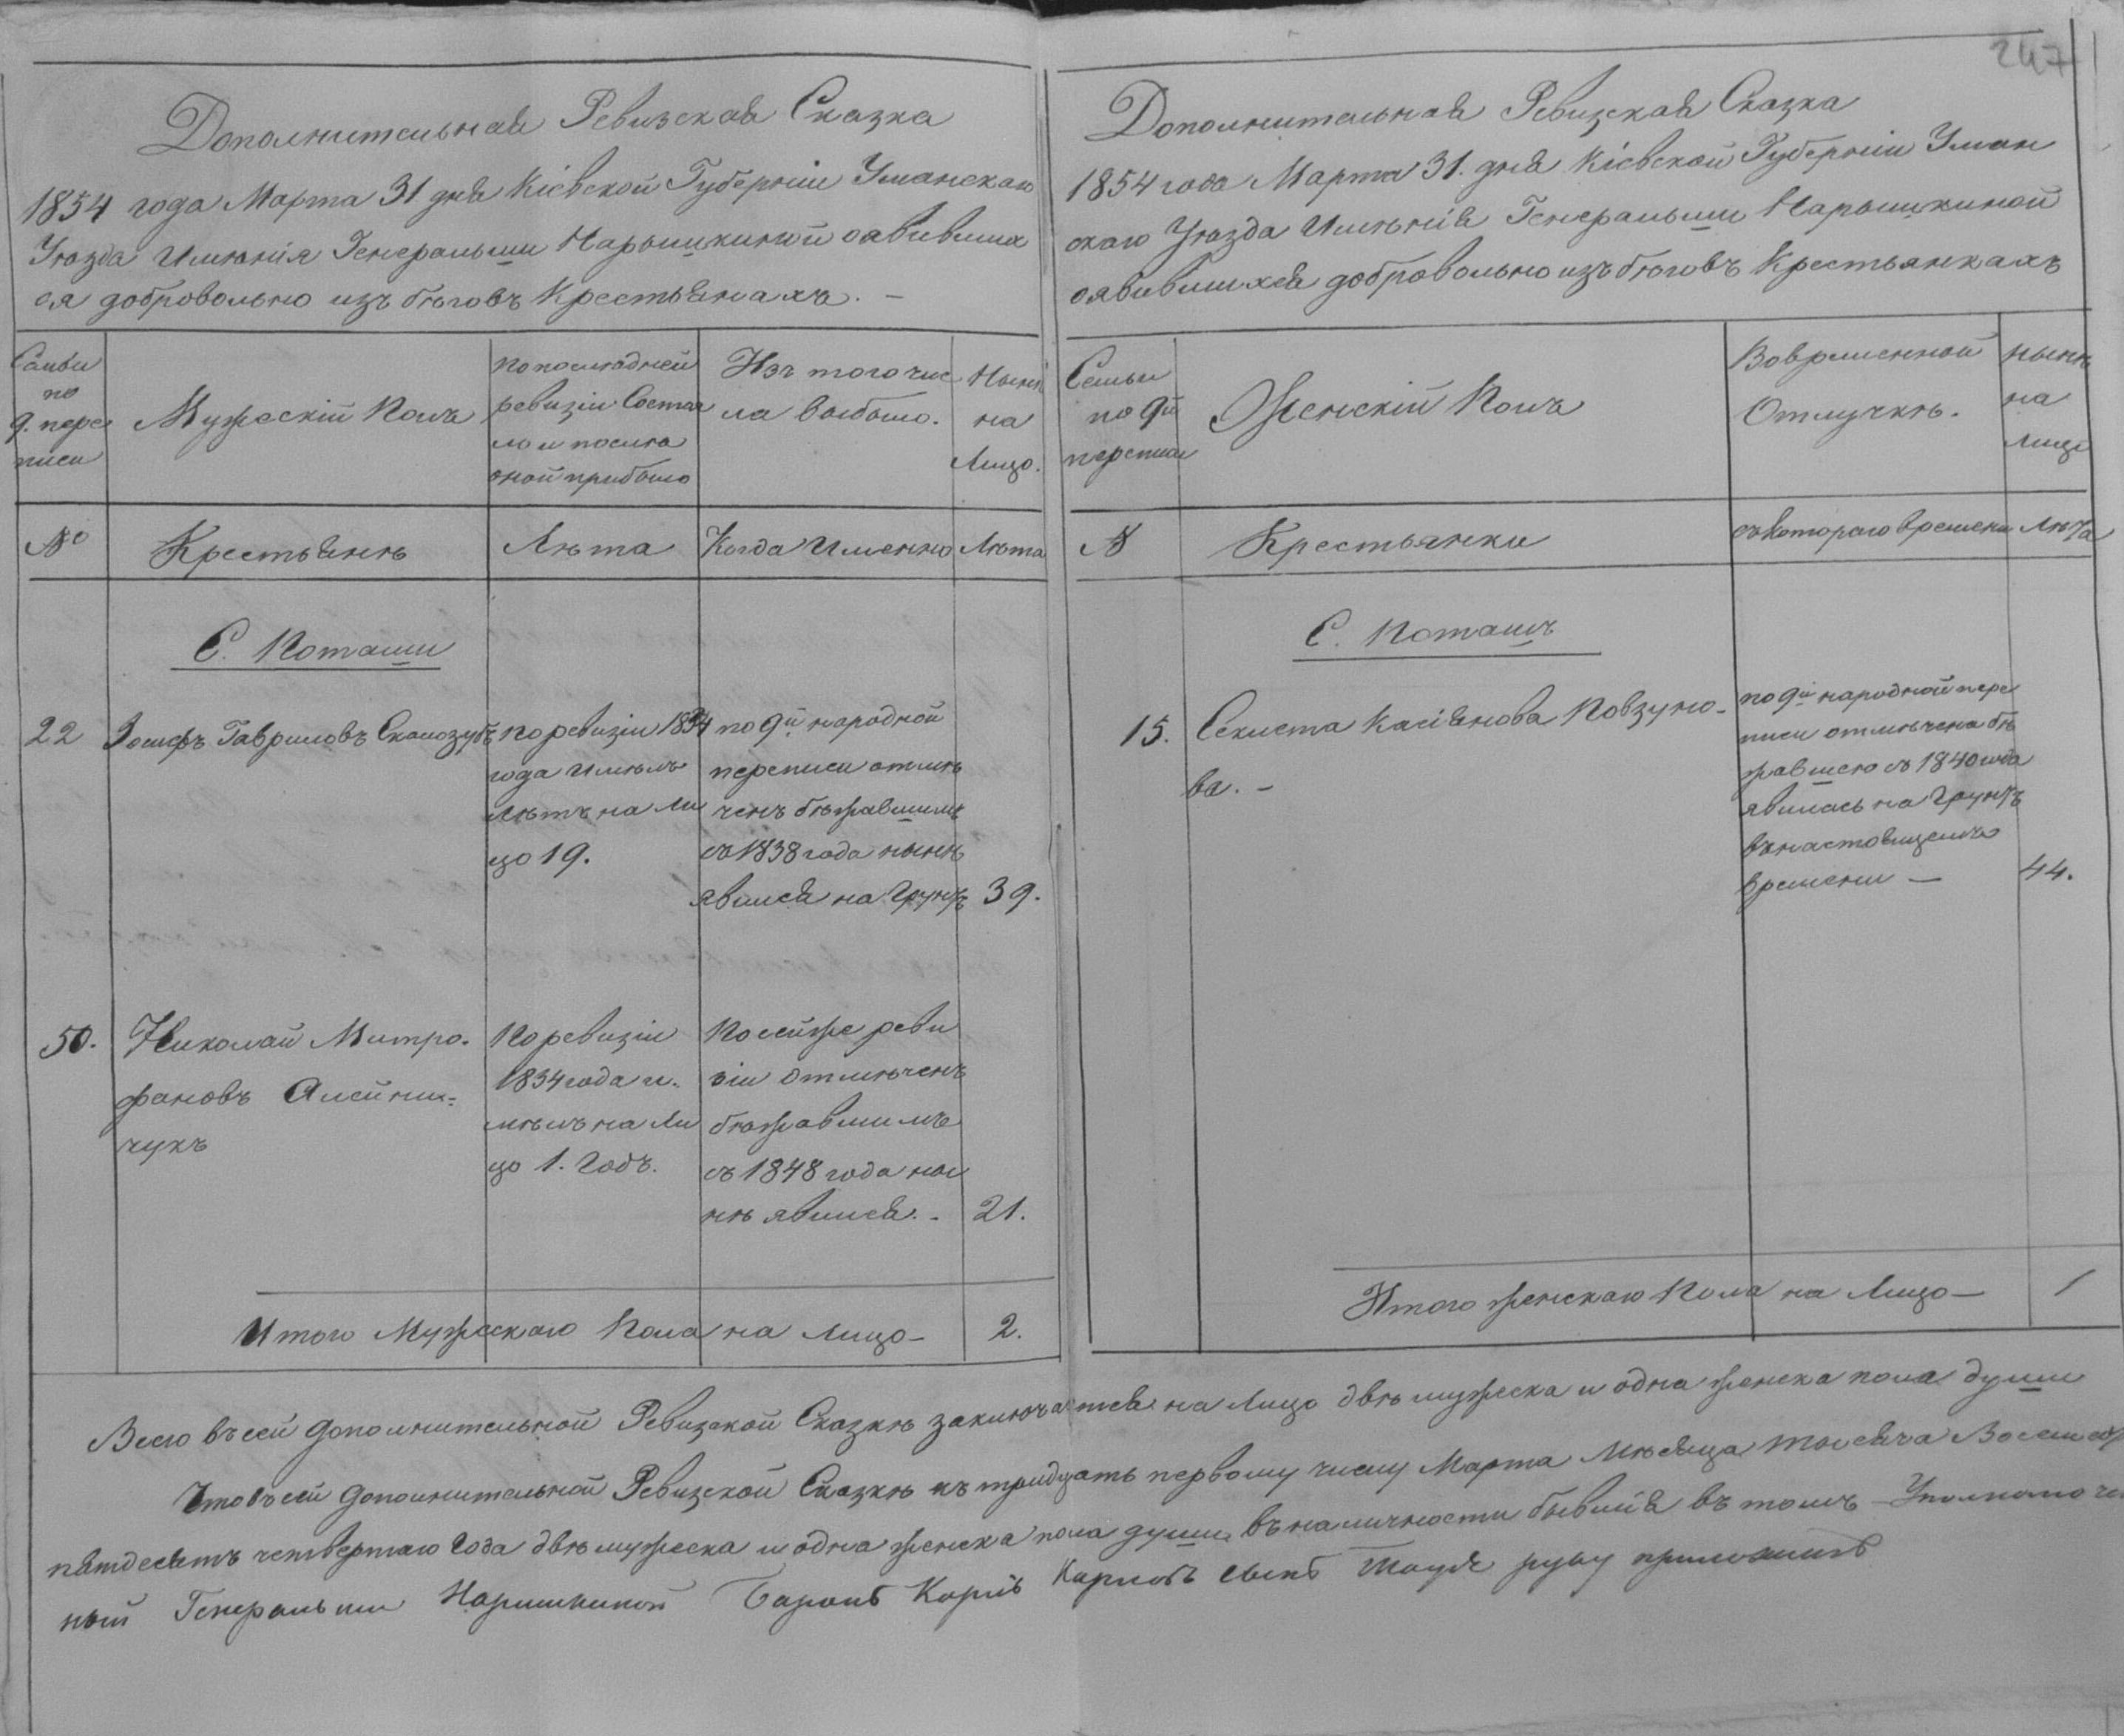 247
Дополнительная Ревизская Сказка
1854 года Марта 31 дня Кіевской Губерніи Уманскаго
Уѣзда Имѣнія Генеральши Нарышкиной оявивших
ся добровольно изъ бѣговъ Крестьянахъ. –
Семьи
по
9. пере
писи
Мужескій Полъ
По последней
ревизіи Состоя
ло и после
оной прибыло
Изъ того чис
ла выбыло.
Нынѣ
на
Лицо.
№
Крестьянѣ
Лѣта
Когда Именно
Лѣта
С. Поташи
22
Іосифъ Гавриловъ Скалозубъ
по ревизіи 1834
года имѣлъ
лѣтъ на ли
цо 19.
по 9й народной
переписи отмѣ
ченъ бѣжавшимъ
съ 1838 года нынѣ
явился на Грунтъ
39.
50.
Николай Митро-
фановъ Олейни-
чукъ
По ревизіи
1834 года и-
мѣлъ на Ли
цо 1. Годъ.
По сейже реви
зіи отмѣченъ
бѣжавшимъ
съ 1848 года ны
нѣ явился. –
21.
Итого Мужескаго Пола на лицо –
2.
Дополнительная Ревизская Сказка
1854 года Марта 31. дня Кіевской Губерніи Уман
скаго Уѣзда Имѣнія Генеральши Нарышкиной
оявившихся добровольно изъ бѣговъ Крестьянкахъ
Семьи
по 9й
переписи
Женскій Полъ
Во временной
Отлучкѣ.
нынѣ
на
лице
№
Крестьянки
съ котораго времени
Лѣта
С. Поташъ
15.
Касіянова Повзуно-
ва. –
по 9й народной пере
писи отмѣчена бѣ
жавшею съ 1840 года
явилась на Грунтъ
въ настоящемъ
времени –
44.
Итого женскаго Пола на Лицо –
1
Всего въ сей дополнительной Ревизской Сказкѣ заключается на Лицо двѣ мужеска и одна женска пола души
Что въ сей дополнительной Ревизской Сказкѣ къ тридцать первому числу Марта Мѣсяца тысяча Восемсотъ
пятдесятъ четвертаго Года двѣ мужеска и одна женска пола души въ наличности бывшія въ томъ – Уполномочен
ный Генеральши Нарышкиной Баронъ Карлъ Карловъ сынъ руку приложилъ